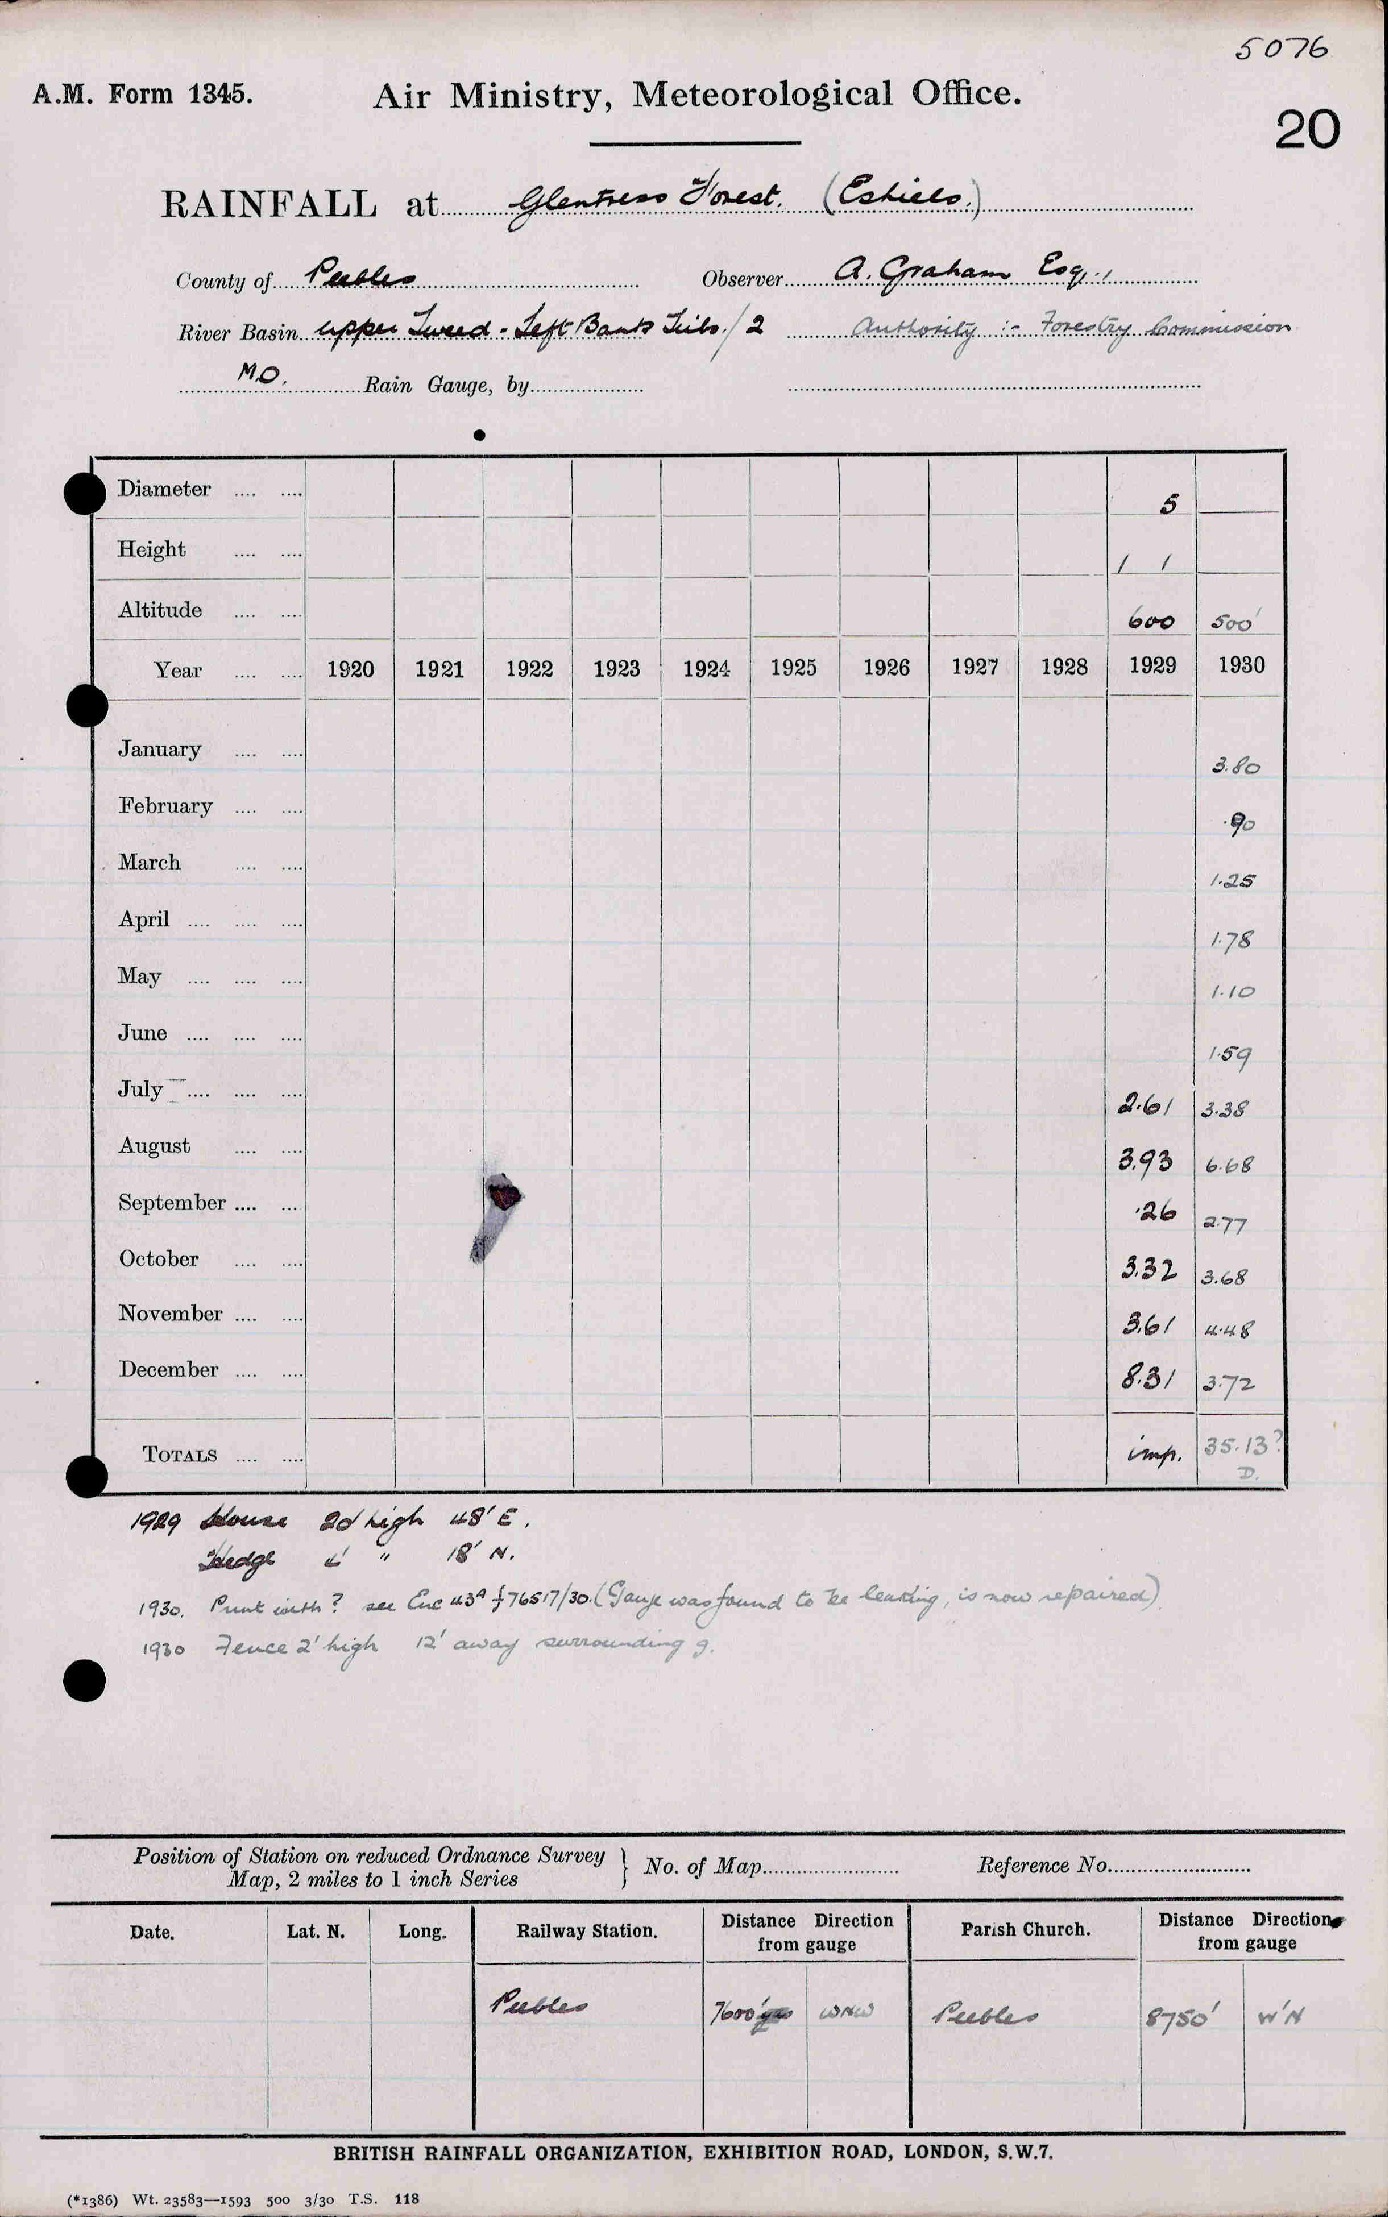 5076
A.M. Form 1345. Air Ministry, Meteorological Office.
20
RAINFALL at Glentress Forest. (Eshiels.)
County of Peebles Observer A. Graham Esq.,
River Basin upper Tweed - Left Bank Tribs. / 2 Authority :- Forestry Commission
M.O. Rain Gauge, by
Diameter 5
Height 1 1
Altitude 600 500'
Year 1920 1921 1922 1923 1924 1925 1926 1927 1928 1929 1930
January 3.80
February .90
March 1.25
April 1.78
May 1.10
June 1.59
July 2.61 3.38
August 3.93 6.68
September .26 2.77
October 3.32 3.68
November 3.61 4.48
December 8.31 3.72
TOTALS imp. 35.13?
D.
1929 House 20' high 48' E.
Hedge 4' " 18' N.
1930. Print with? see Enc 43A f 76517/30. (Gauge was found to be leaking, is now repaired)
1930 Fence 2' high 12' away surrounding g.
Position of Station on reduced Ordnance Survey
Map, 2 miles to 1 inch Series } No. of Map Reference No.
Date. Lat. N. Long. Railway Station. Distance Direction from gauge Parish Church. Distance Direction from gauge
Peebles 7600' WNW Peebles 8750' W'N
BRITISH RAINFALL ORGANIZATION, EXHIBITION ROAD, LONDON, S.W.7.
(*1386) Wt. 23583—1593 500 3/30 T.S. 118